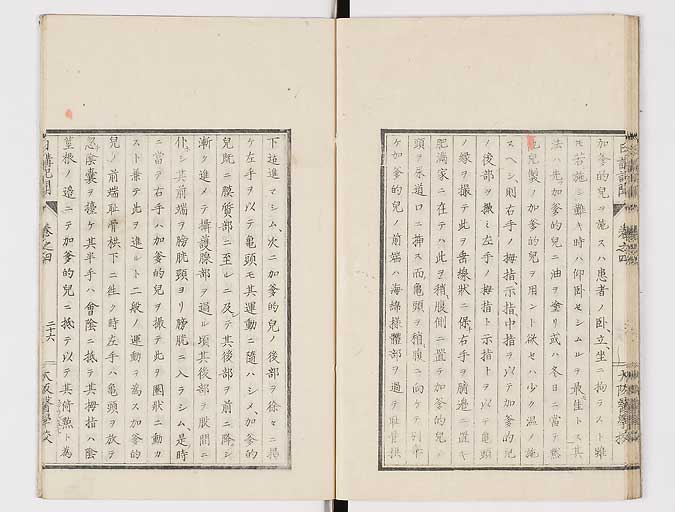 加爹的兒ヲ施スハ患者ノ臥、立、坐ニ拘ラスト雖
モ若施シ難キ時ハ仰臥セシムルヲ最佳トス其
法ハ先加爹的兒ニ油ヲ塗リ或ハ冬日ニ當テ
兒製ノ加爹的兒ヲ用ント欲セハ少ク温ノ施
スヘシ則右手ノ拇指示指中指ヲ以テ加爹的兒
ノ後部ヲ撒ミ左手ノ拇指ト示指トヲ以テ亀頭
ノ縁ヲ撮テ此ヲ直線狀ニ保右手ヲ臍邉ニ置キ
肥満家ニ在テハ此ヲ稍腹側ニ置テ加爹的兒ノ
頭ヲ尿道口ニ挿ス而亀頭ヲ稍腹ニ向ケテ
ケ加爹的兒ノ前端ハ海綿様體部ヲ過テ耻骨拱
日講記聞 巻之四 大阪醫學校
下迠進マシム、次ニ加爹的兒ノ後部ヲ徐々ニ揭
ケ左手ヲ以テ亀頭モ其運動ニ隨ハシメ、加爹的
兒既ニ膜質部ニ至レニ及テ其後部ヲ前ニ降シ
漸ク進メテ攝護腺部ヲ過ル頃其後部ヲ股間ニ
仆シ其前端ヲ膀胱頭ヨリ膀胱ニ入ラシム、是時
ニ當テ右手ハ加爹的兒ヲ撮テ此ヲ圈狀ニ動カ
スト兼テ此ヲ進ルト二般ノ運動ヲ為ス加爹的
兒ノ前端耻骨拱下ニ在ク時左手ハ亀頭ヲ放テ
忽陰囊ヲ擡ケ其半手ハ會陰ニ抵テ其拇指ハ陰
莖根ノ邉ニテ加爹的兒ニ抵テ以テ其倚點ト為
日講記聞 巻之四 二十六 大阪醫學校